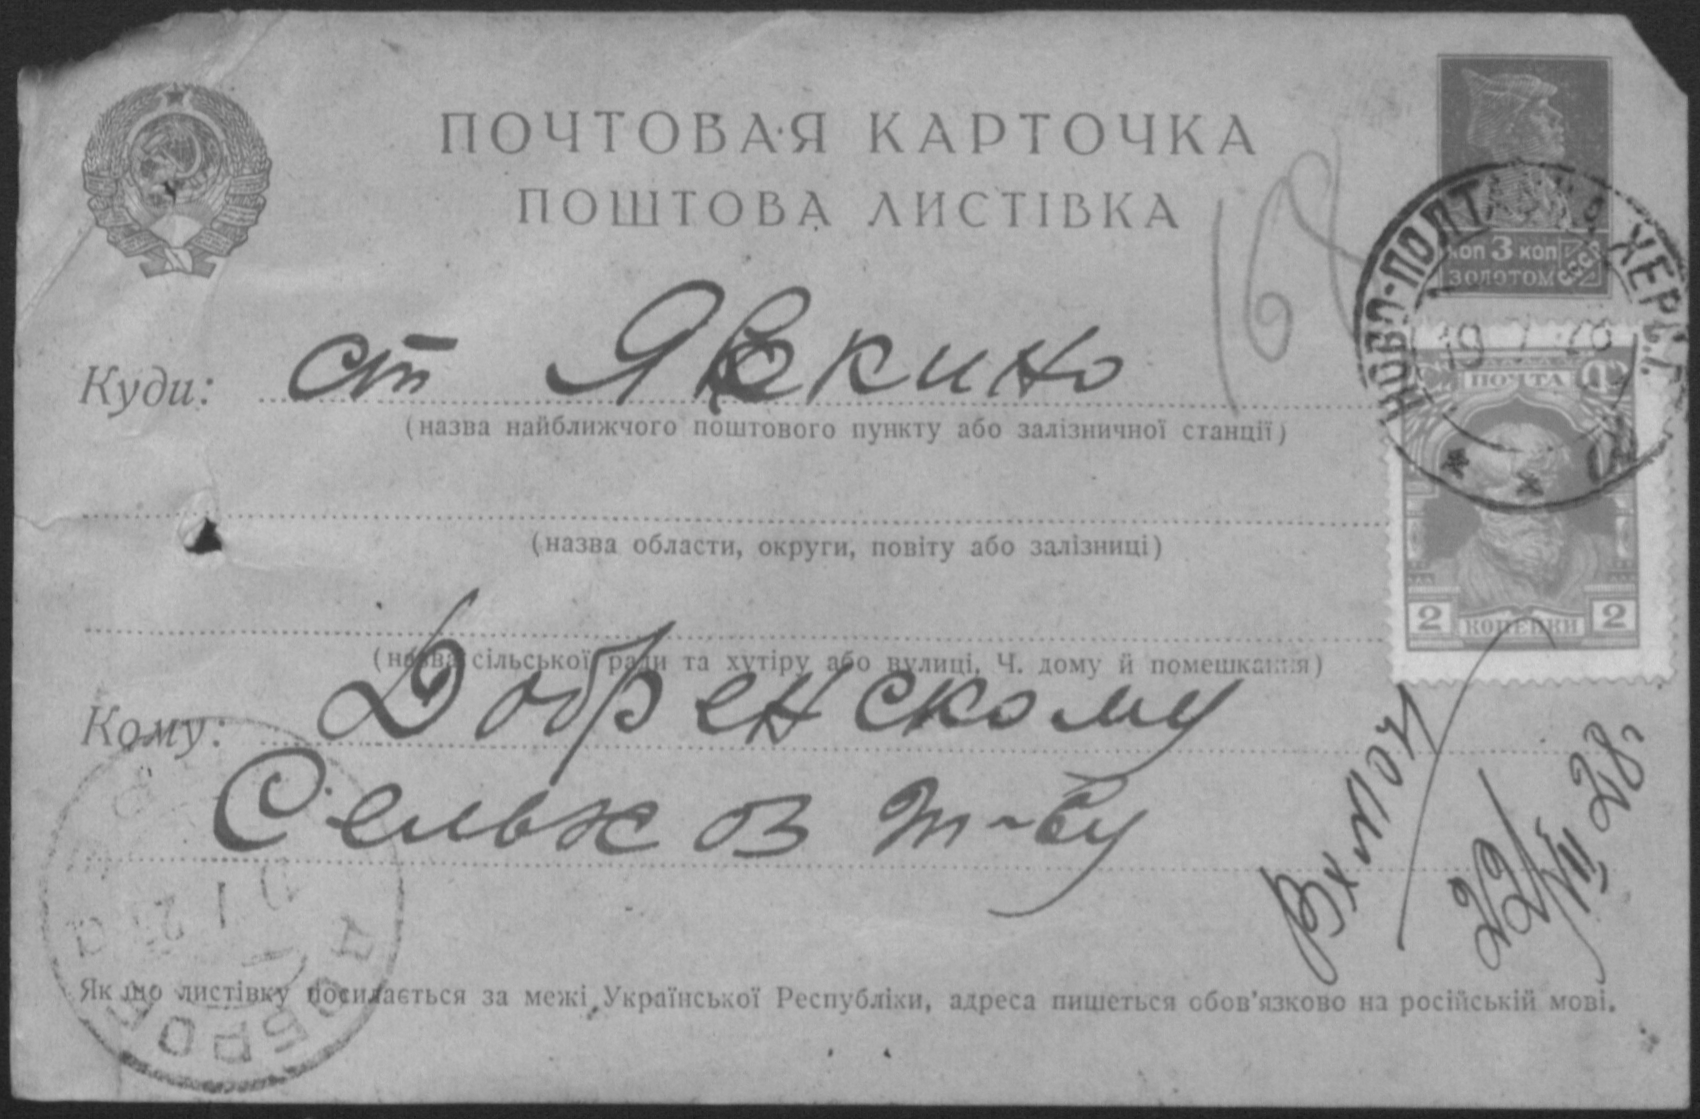 ПОЧТОВАЯ КАРТОЧКА
ПОШТОВА ЛИСТІВКА
коп 3 коп
ЗОЛОТОМ СССР
НОВО-ПОЛТАВКА ХЕРС.
ПОЧТА
2 КОПЕЙКИ 2
168
Куди: ст Явкино
(назва найближчого поштового пункту або залізничної станції)
(назва области, округи, повіту або залізниці)
(назва сільської ради та хутіру або вулиці, Ч. дому й помешкання)
Кому: Добренскому
Сельхоз т-ву
Вх №
22/VII 28г
ДОБРОЕ
Як що листівку посилається за межі Української Республіки, адреса пишеться обов'язково на російській мові.